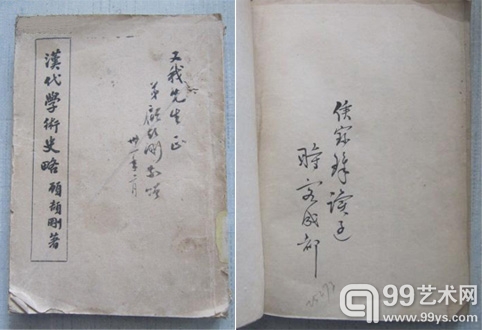 漢代學術史略 顧頡剛著
又我先生正
弟顧頡剛敬贈
卅一年二月
侯寶璋讀過
時客成都
99艺术网
www.99ys.com